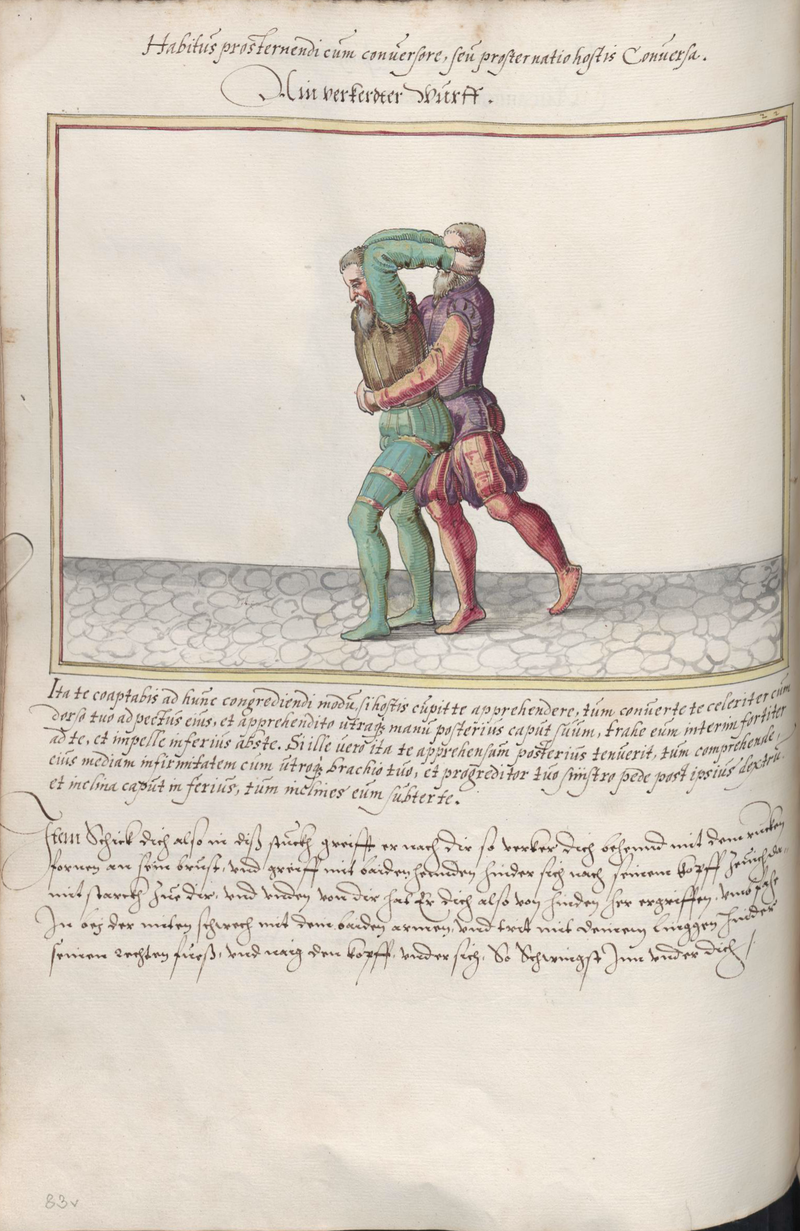 Habitus prosternendi cum conuersore, seu prosternatio hostis Conuersa.
Ain verkerdter Wurff.
22
Ita te coaptabis ad hunc congrediendi modū, si hostis cupit te apprehendere, tum conuerte te celeriter cum
dorso tuo ad pectus eius, et apprehendito utraq; manu posterius caput suum, trahe eum interim fortiter
ad te, et impelle inferius abs te. Si ille uero ita te apprehensum posterius tenuerit, tum comprehende
eius mediam infirmitatem cum utroq; brachio tuo, et progreditor tuo sinistro pede post ipsius dextrū
et inclina caput inferius, tum inclines eum subter te.
Item Schick dich also in diß stuckh greifft er nach dir so verker dich behennd mit dem rucken
fornen an sein brust, vnd greiff mit baiden henden hinder sich nach seinem kopff zeuch
mit starckh zue dir, vnd vnden von dir hat Er dich also von hinden her ergriffen,
In beÿ der miten schwech mit dem baiden armen, vnd trit mit deinem linggen hinder
seinen rechten fueß, vnd naig den kopff vnder sich, So Schwingst Inn vnder dich
83v